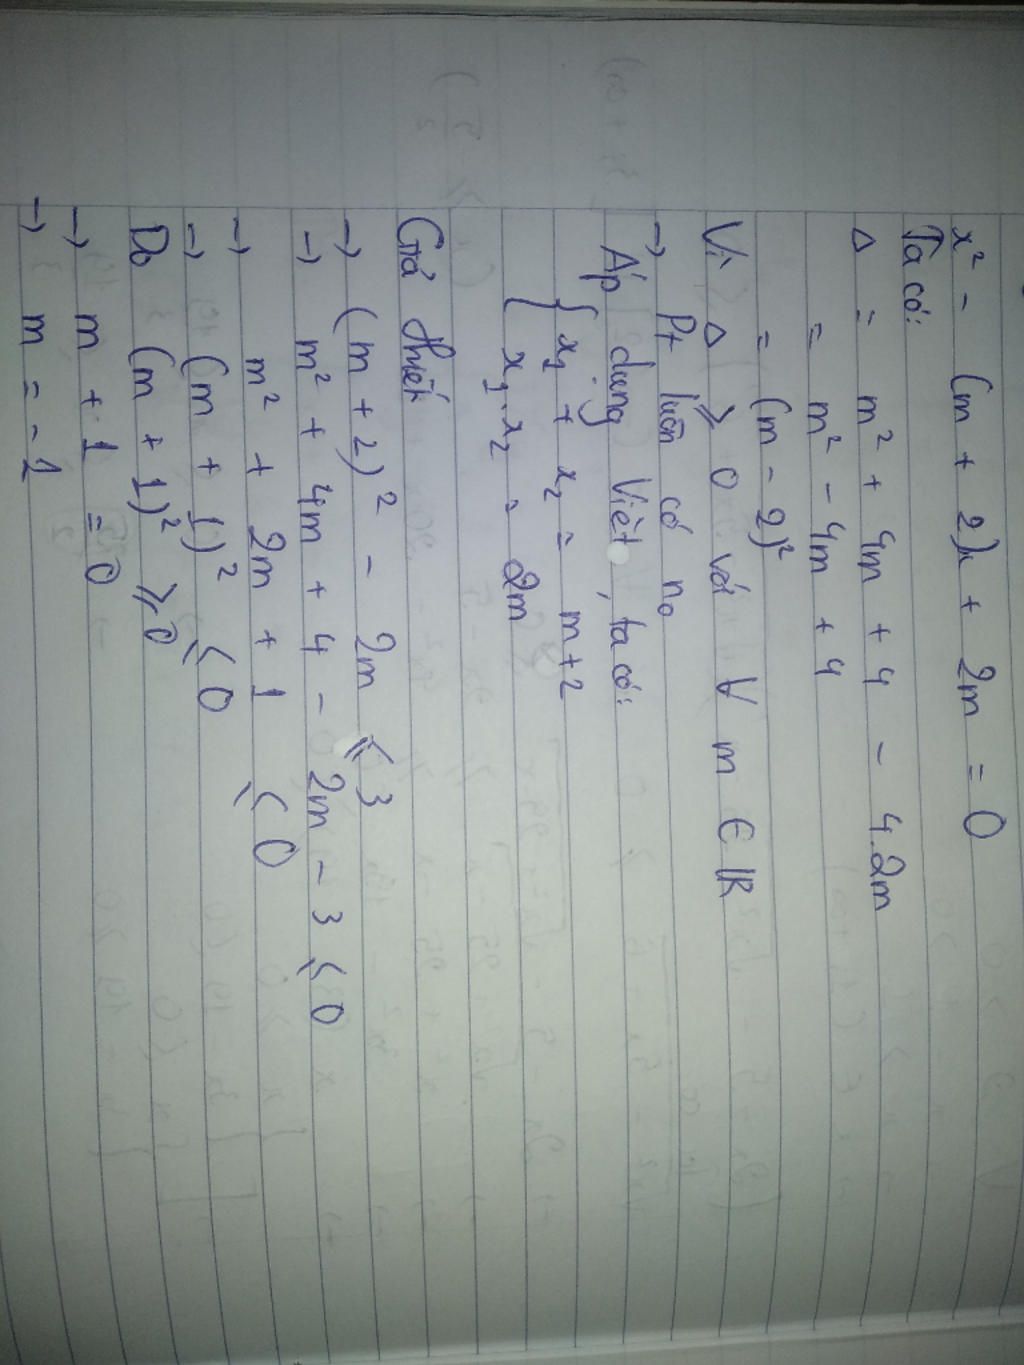 x² - (m + 2)x + 2m = 0
Ta có:
Δ = m² + 4m + 4 - 4.2m
= m² - 4m + 4
= (m - 2)²
Vì Δ ⩾ 0 với ∀ m ∈ ℝ
→ Pt luôn có n₀
Áp dụng Viét, ta có:
{ x₁ + x₂ = m+2
x₁.x₂ = 2m
Giả thiết
→ (m + 2)² - 2m ⩽ 3
→ m² + 4m + 4 - 2m - 3 ⩽ 0
→ m² + 2m + 1 ⩽ 0
→ (m + 1)² ⩽ 0
Do (m + 1)² ⩾ 0
→ m + 1 = 0
→ m = -1